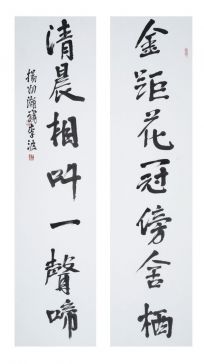 金距花冠傍舍栖
清晨相叫一聲啼
李波